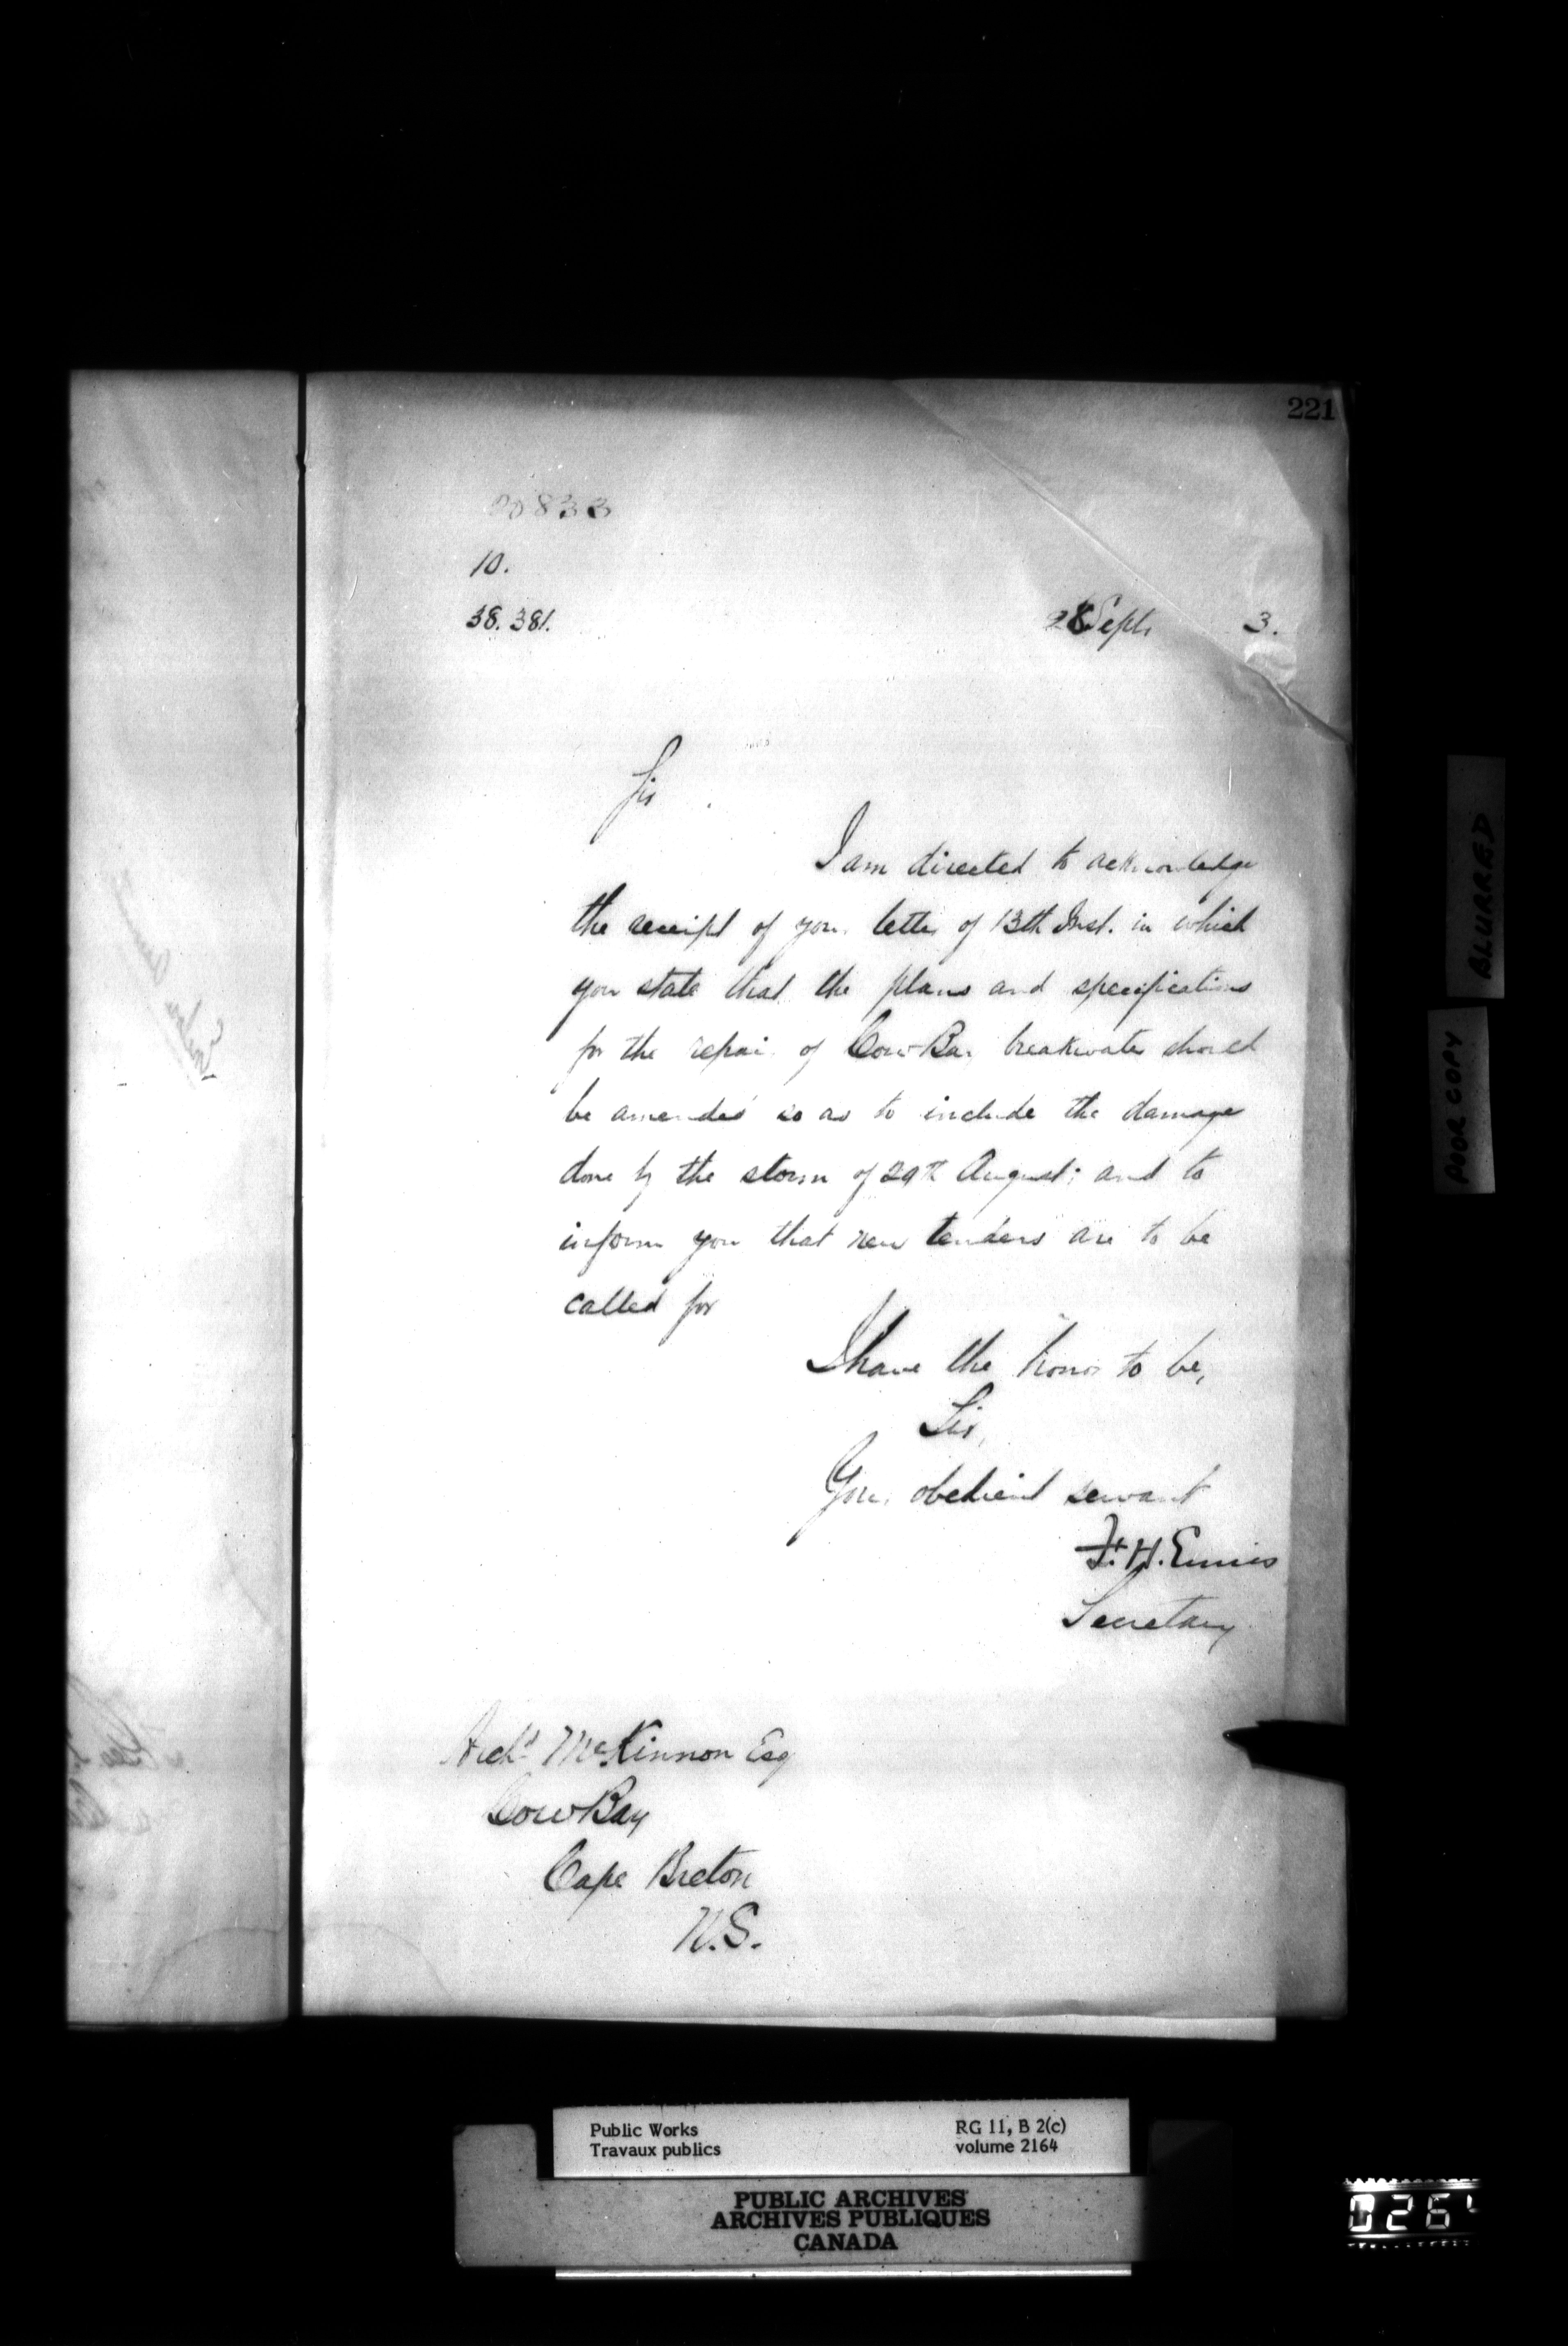 221
20833
10.
38.381.
28 Sept. 3.
Sir
I am directed to acknowledge
the receipt of your letter of 13th Inst. in which
you state that the plans and specifications
for the repair of Cow Bay breakwater should
be amended so as to include the damage
done by the storm of 29th August; and to
inform you that new tenders are to be
called for
I have the honor to be,
Sir,
Your obedient servant
F. H. Ennis
Secretary
Archd. McKinnon Esq
Cow Bay
Cape Breton
N.S.
BLURRED
POOR COPY
Public Works RG 11, B 2(c)
Travaux publics volume 2164
PUBLIC ARCHIVES
ARCHIVES PUBLIQUES
CANADA